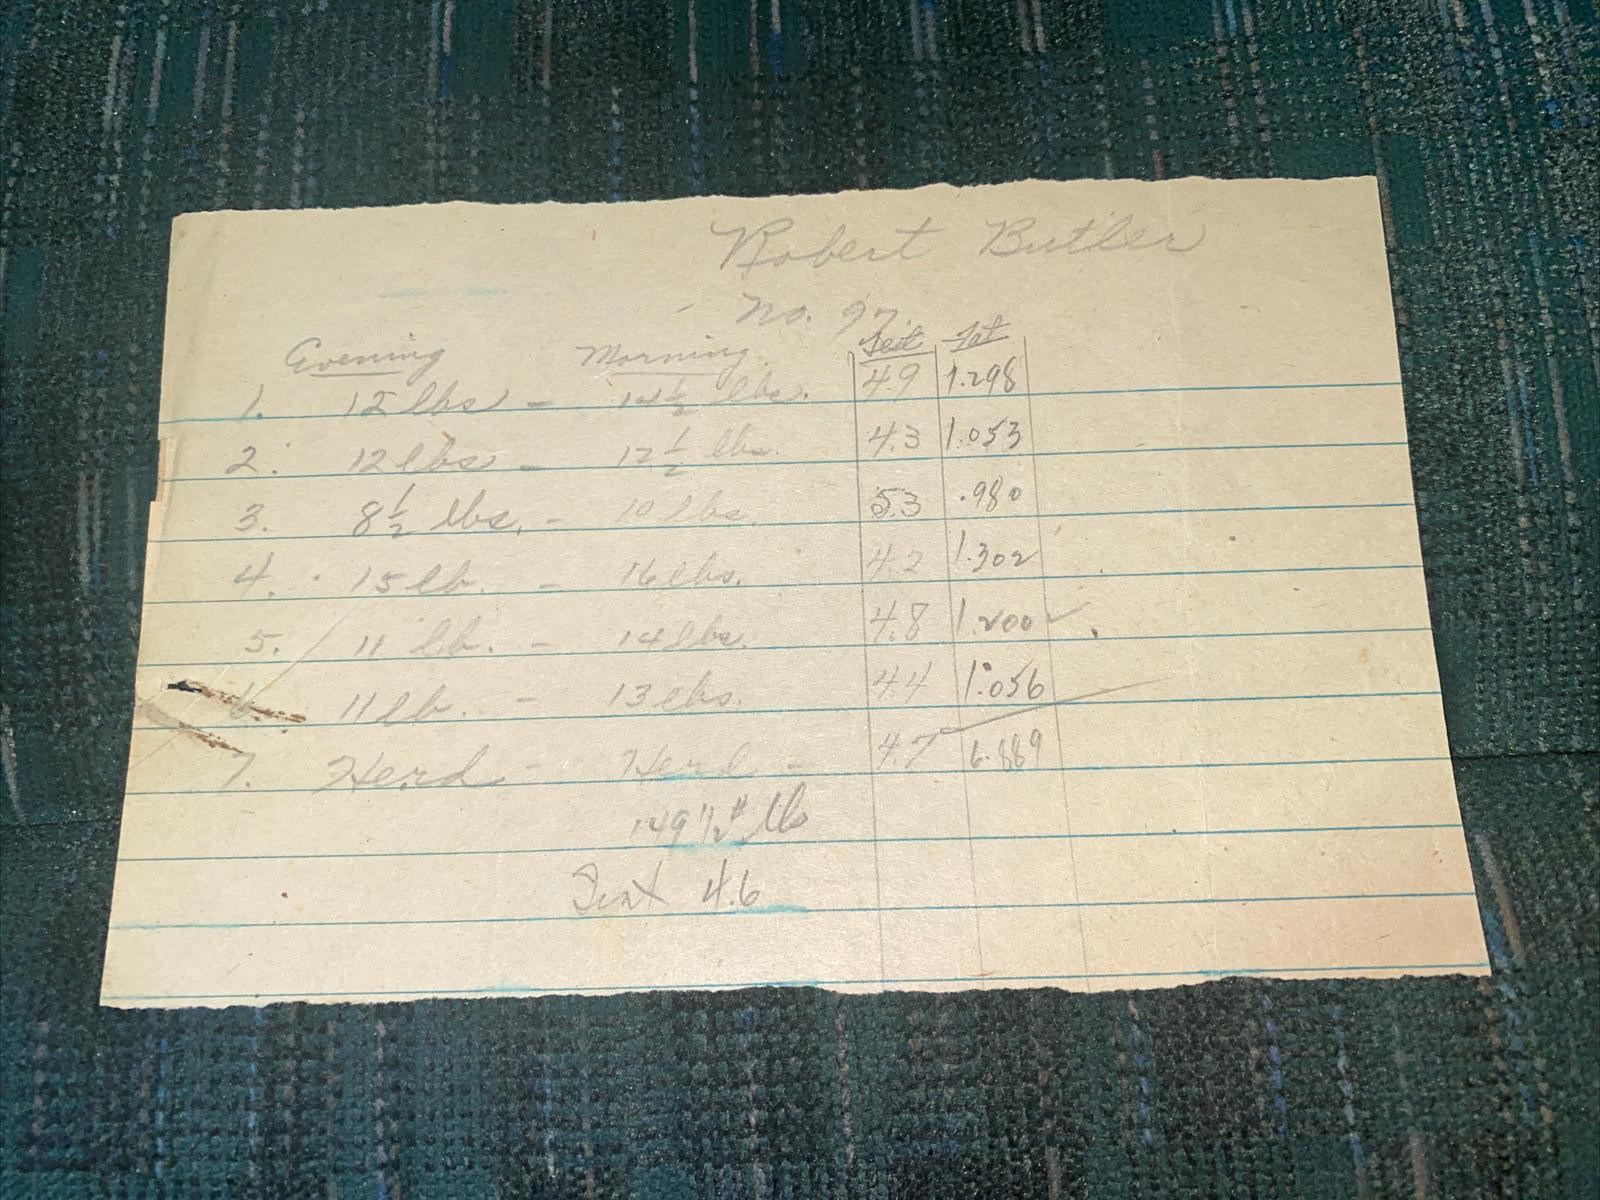 Robert Butler
No. 97.
Evening Morning Test Fat
1. 12 lbs - 14 1/2 lbs. 4.9 1.298
2. 12 lbs - 12 1/2 lbs. 4.3 1.053
3. 8 1/2 lbs. - 10 lbs. 5.3 .980
4. 15 lb. - 16 lbs. 4.2 1.302
5. 11 lb. - 14 lbs. 4.8 1.200
6. 11 lb. - 13 lbs. 4.4 1.056
7. Herd - Herd - 4.7 6.889
149 1/2 # lb
Test 4.6